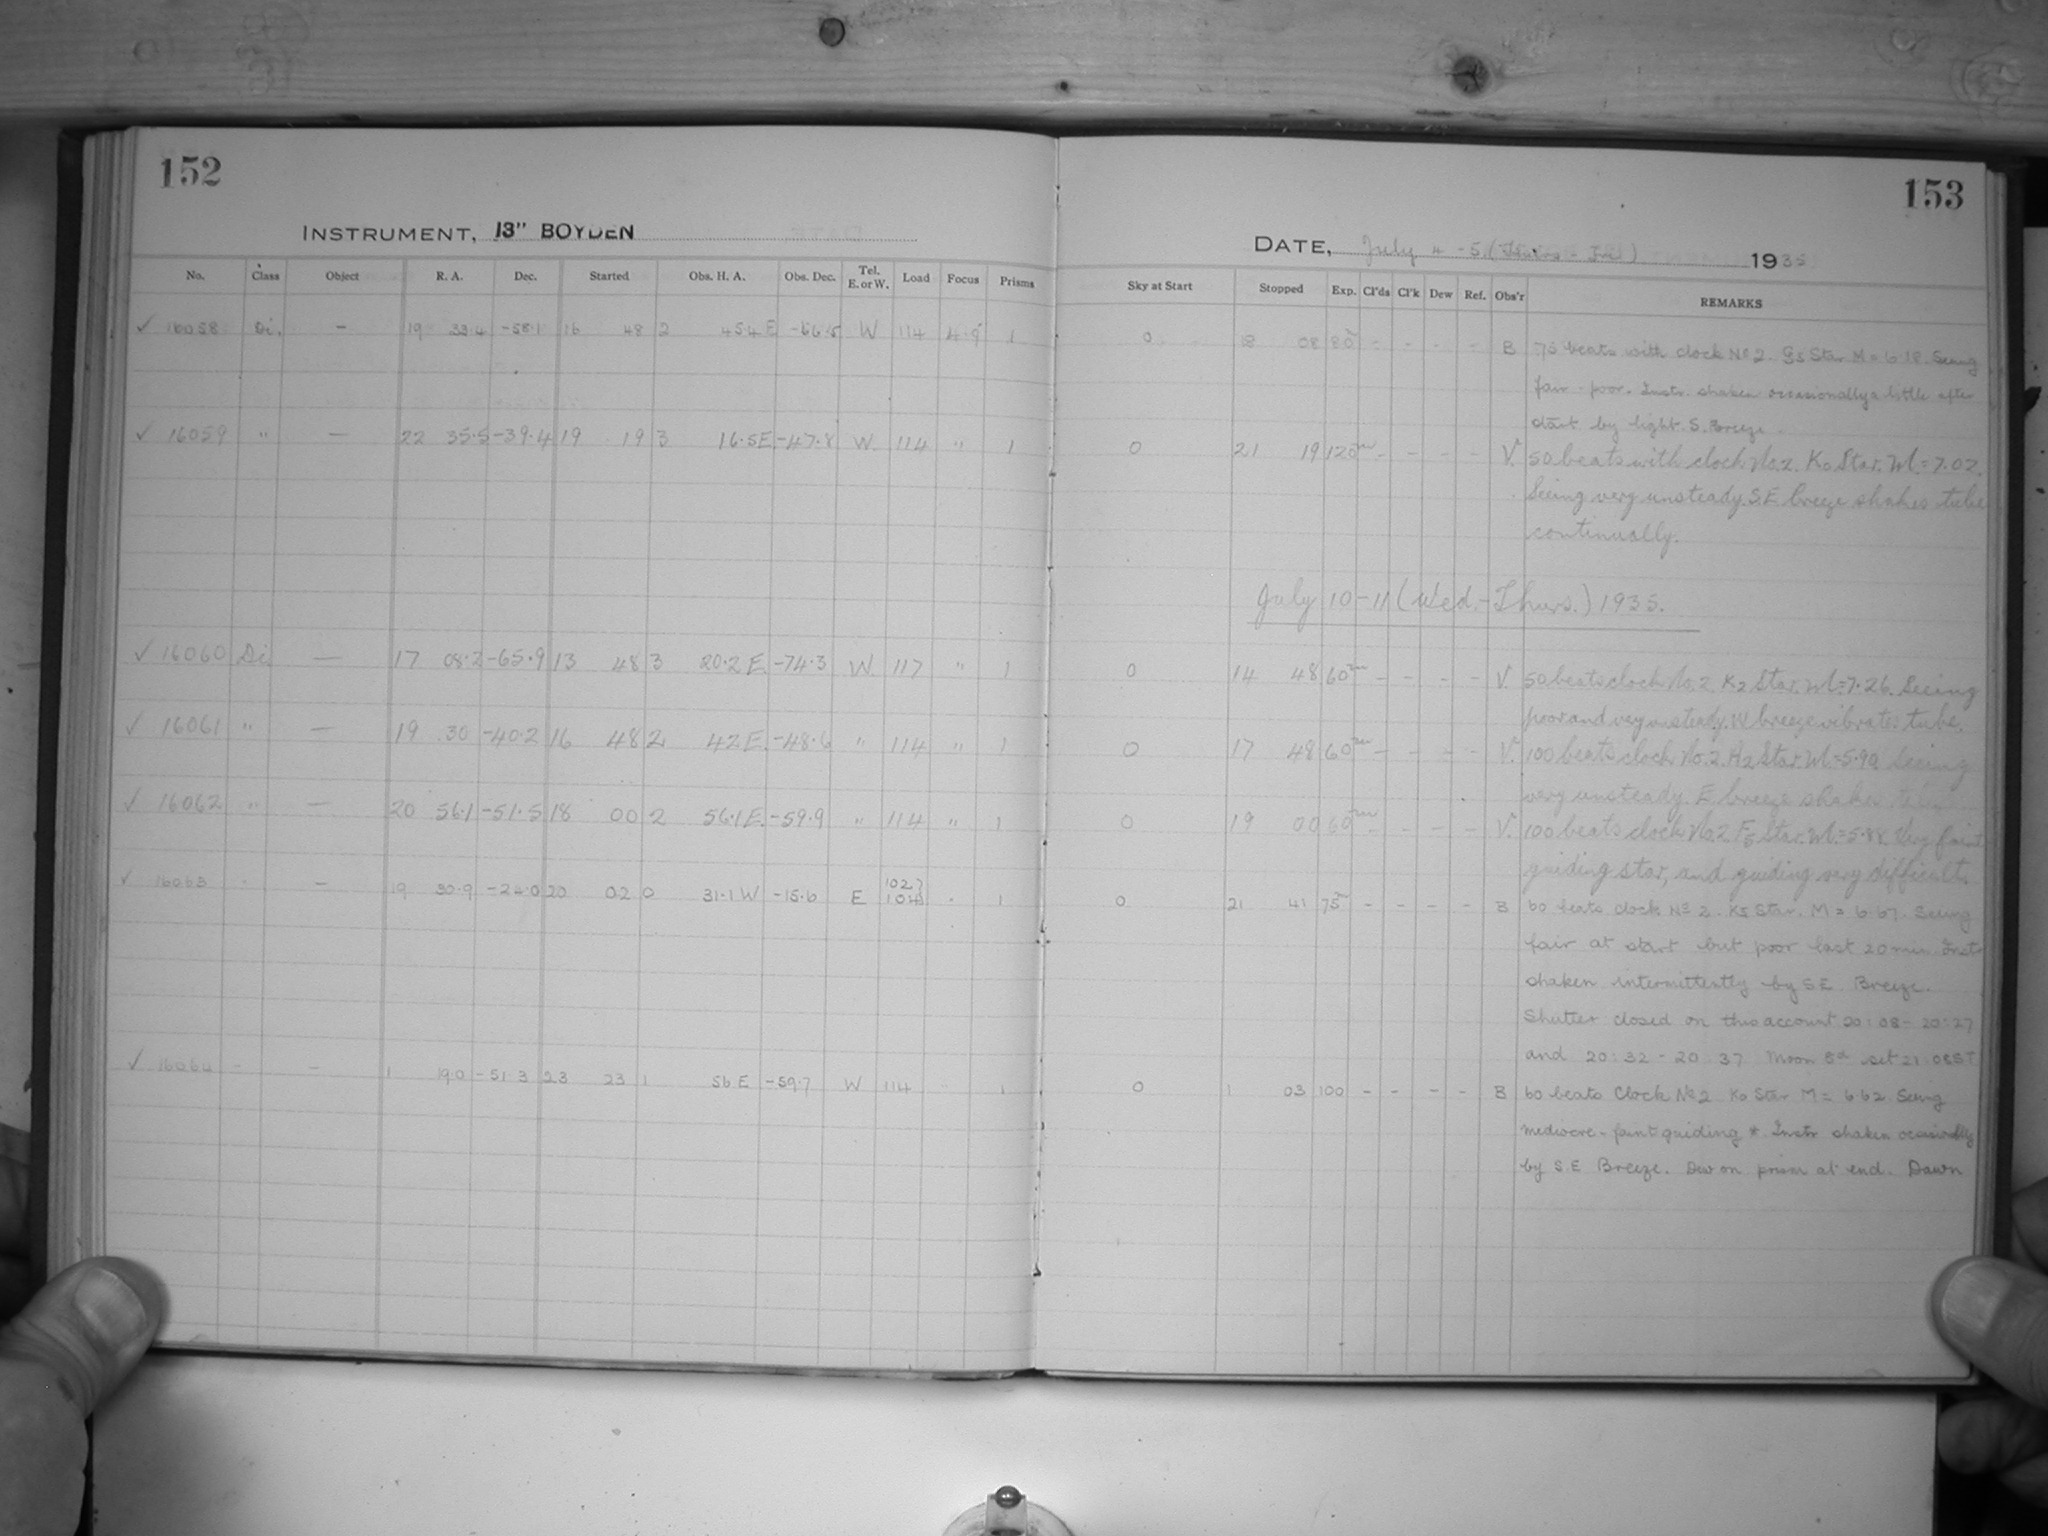 152
153
INSTRUMENT, 13" BOYDEN
DATE, July 4-5 ( ) 1935
No. Class Object R. A. Dec. Started Obs. H. A. Obs. Dec. Tel. E. or W. Load Focus Prisms Sky at Start Stopped Exp. Cl'ds Cl'k Dew Ref. Obs'r REMARKS
✓ 16058 Di. – 19 33.4 -58.1 16 48 2 45.4 E -66.5 W 114 4.9 1 0 18 08 80m - - - - B 75 beats with clock No 2. G5 Star M = 6.18. Seeing
fair - poor. Instr. shaken occasionally a little after
start by light S. Breeze.
✓ 16059 " — 22 35.5 -39.4 19 19 3 16.5E. -47.8 W. 114 " 1 0 21 19 120m - - - - V. 50 beats with clock No. 2. K0 Star. M. = 7.02.
Seeing very unsteady. S.E. breeze shakes tube
continually.
July 10-11 (Wed.-Thurs.) 1935.
✓ 16060 Di — 17 08.2 -65.9 13 48 3 20.2 E. -74.3 W. 117 " 1 0 14 48 60m - - - - V. 50 beats clock No. 2. K2 Star. M.=7.26. Seeing
poor and very unsteady. W breeze vibrates tube.
✓ 16061 " — 19 30 -40.2 16 48 2 42 E. -48.6 " 114 " 1 0 17 48 60m - - - - V. 100 beats clock No. 2. A2 Star. M.=5.90 Seeing
very unsteady. E breeze shakes tube
✓ 16062 " — 20 56.1 -51.5 18 00 2 56.1 E. -59.9 " 114 " 1 0 19 00 60m - - - - V. 100 beats clock No. 2 F5 Star. M.=5.88. Very faint
guiding star, and guiding very difficult.
✓ 16063 " — 19 30.9 -24.0 20 02 0 31.1 W -15.6 E 102 104 " 1 0 21 41 75m - - - - B 60 beats clock No 2. K5 Star. M = 6.67. Seeing
fair at start but poor last 20 min. Inst
shaken intermittently by S E Breeze.
Shutter closed on this account 20:08 - 20:27
and 20:32 - 20:37 Moon set 21:08 ST
✓ 16064 - - 1 19.0 -51.3 23 23 1 56 E -59.7 W 114 1 0 1 03 100 - - - - B 60 beats Clock No 2 K0 Star M = 6.62 Seeing
mediocre - faint guiding * Instr shaken occasionally
by S.E Breeze. Dew on prism at end. Dawn